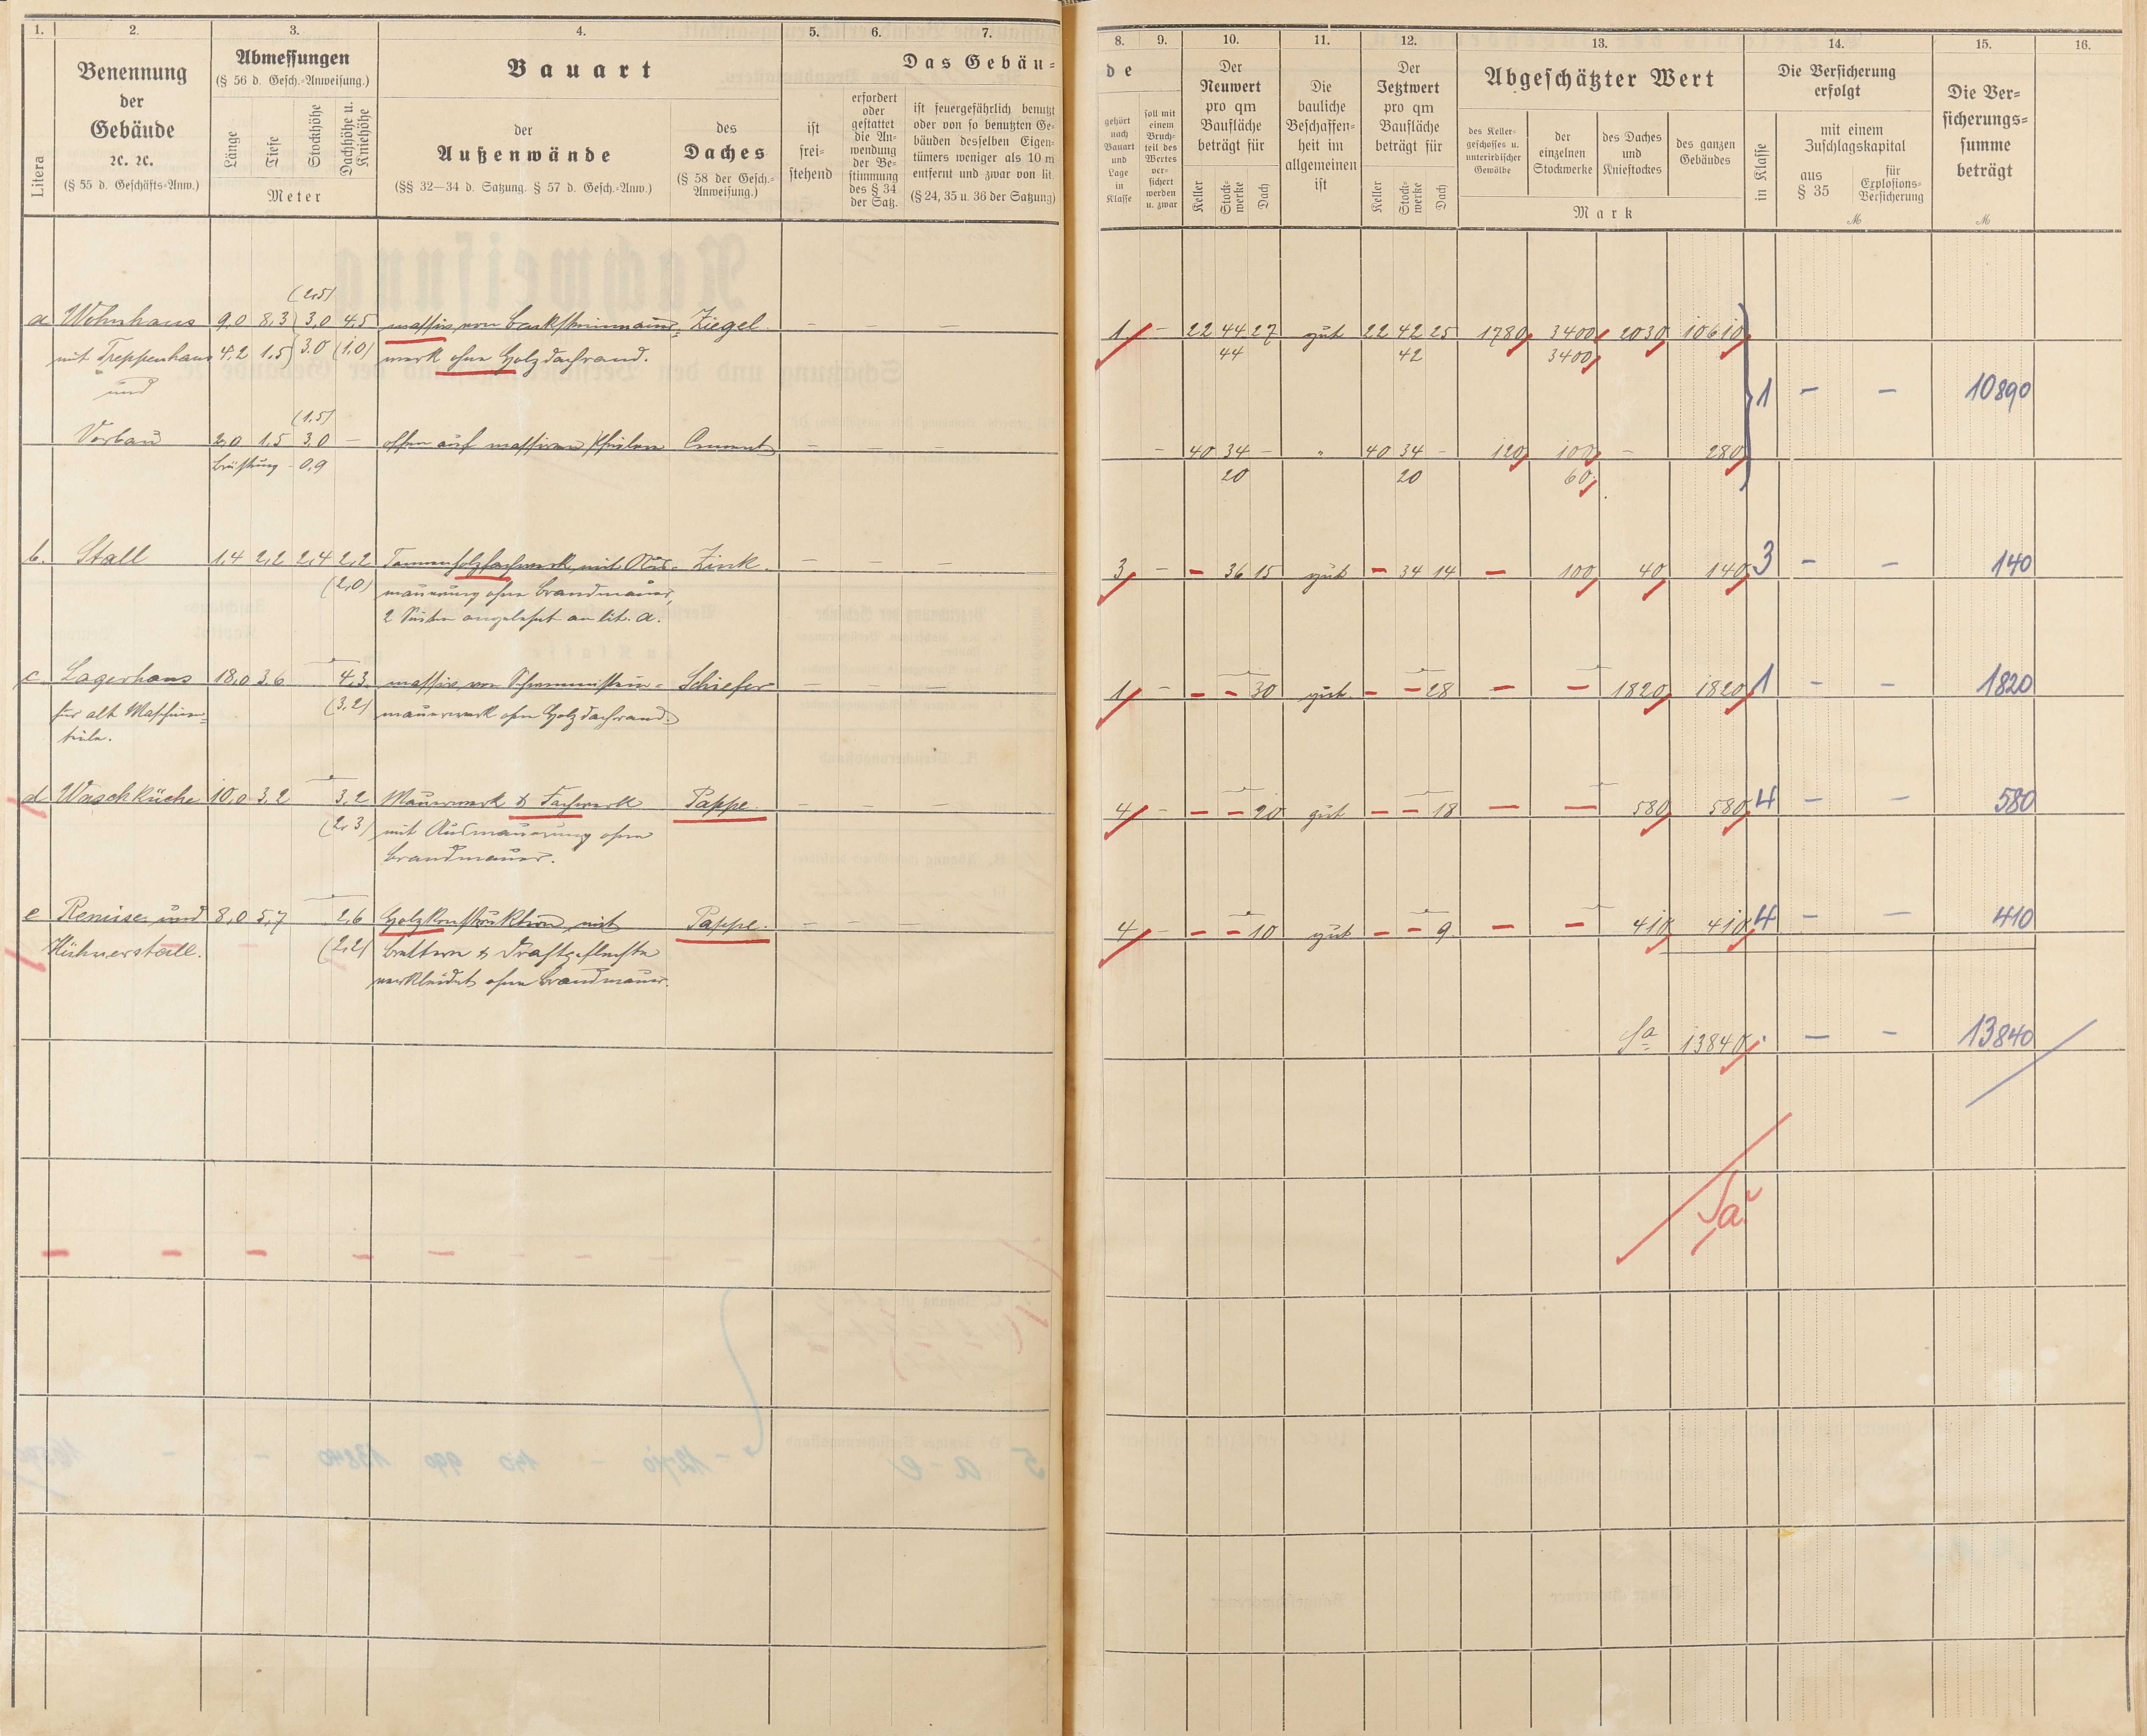 1. 2. 3. 4. 5. 6. 7.
Benennung
der
Gebäude
ꝛc. ꝛc.
(§ 55 d. Geschäfts=Anw.)
Litera
Abmessungen
(§ 56 d. Gesch.=Anweisung.)
Länge
Tiefe
Stockhöhe
Dachhöhe u.
Kniehöhe
Meter
Bauart
der
Außenwände
(§§ 32—34 d. Satzung. § 57 d. Gesch.=Anw.)
des
Daches
(§ 58 der Gesch.=
Anweisung.)
Das Gebäu=
ist
frei=
stehend
erfordert
oder
gestattet
die An=
wendung
der Be=
stimmung
des § 34
der Satz.
ist feuergefährlich benutzt
oder von so benutzten Ge=
bäuden desselben Eigen=
tümers weniger als 10 m
entfernt und zwar von lit.
(§ 24, 35 u. 36 der Satzung)
(2,5)
a Wohnhaus 9,0 8,3 3,0 4,5 massiv von Backsteinmauer= Ziegel. — — —
mit Treppenhaus 4,2 1,5 3,0 (1,0) werk ohne Holzdachrand.
und
(1,5)
Vorbau 2,0 1,5 3,0 — offen auf massiven Pfeilern Cement — — —
Brüstung - 0,9
b. Stall 1,4 2,2 2,4 2,2 Tannenholzfachwerk mit Aus= Zink. — — —
(2,0) mauerung ohne Brandmauer,
2 Seiten angelehnt an lit. a.
c. Lagerhaus 18,0 3,6 4,3 massiv von Schwemmstein= Schiefer — — —
für alte Maschinen= (3,2) mauerwerk ohne Holzdachrand.
teile.
d Waschküche 10,0 3,2 3,2 Mauerwerk & Fachwerk Pappe. — — —
(2,3) mit Ausmauerung ohne
Brandmauer.
e Remise und 8,0 5,7 2,6 Holzkonstruktion mit Pappe. — — —
Hühnerstall. (2,2) Brettern & Drahtgeflecht
verkleidet ohne Brandmauer.
8. 9. 10. 11. 12. 13. 14. 15. 16.
de
gehört
nach
Bauart
und
Lage
in
Klasse
soll mit
einem
Bruch=
teil des
Wertes
ver=
sichert
werden
u. zwar
Der
Neuwert
pro qm
Baufläche
beträgt für
Keller
Stock=
werke
Dach
Die
bauliche
Beschaffen=
heit im
allgemeinen
ist
Der
Jetztwert
pro qm
Baufläche
beträgt für
Keller
Stock=
werke
Dach
Abgeschätzter Wert
des Keller=
geschosses u.
unterirdischer
Gewölbe
der
einzelnen
Stockwerke
des Daches
und
Kniestockes
des ganzen
Gebäudes
Mark
Die Versicherung
erfolgt
in Klasse
mit einem
Zuschlagskapital
aus
§ 35
für
Explosions=
Versicherung
M
Die Ver=
sicherungs=
summe
beträgt
M
1 — 22 44 27 gut 22 42 25 1780 3400 2030 10610
44 42 3400
1 — — 10890
— 40 34 — " 40 34 — 120 100 — 280
20 20 60
3 — — 36 15 gut — 34 14 — 100 40 140 3 — — 140
1 — — — 30 gut — — 28 — — 1820 1820 1 — — 1820
4 — — — 20 gut — — 18 — — 580 580 4 — — 580
4 — — — 10 gut — — 9 — — 410 410 4 — — 410
Sa 13840. — — 13840